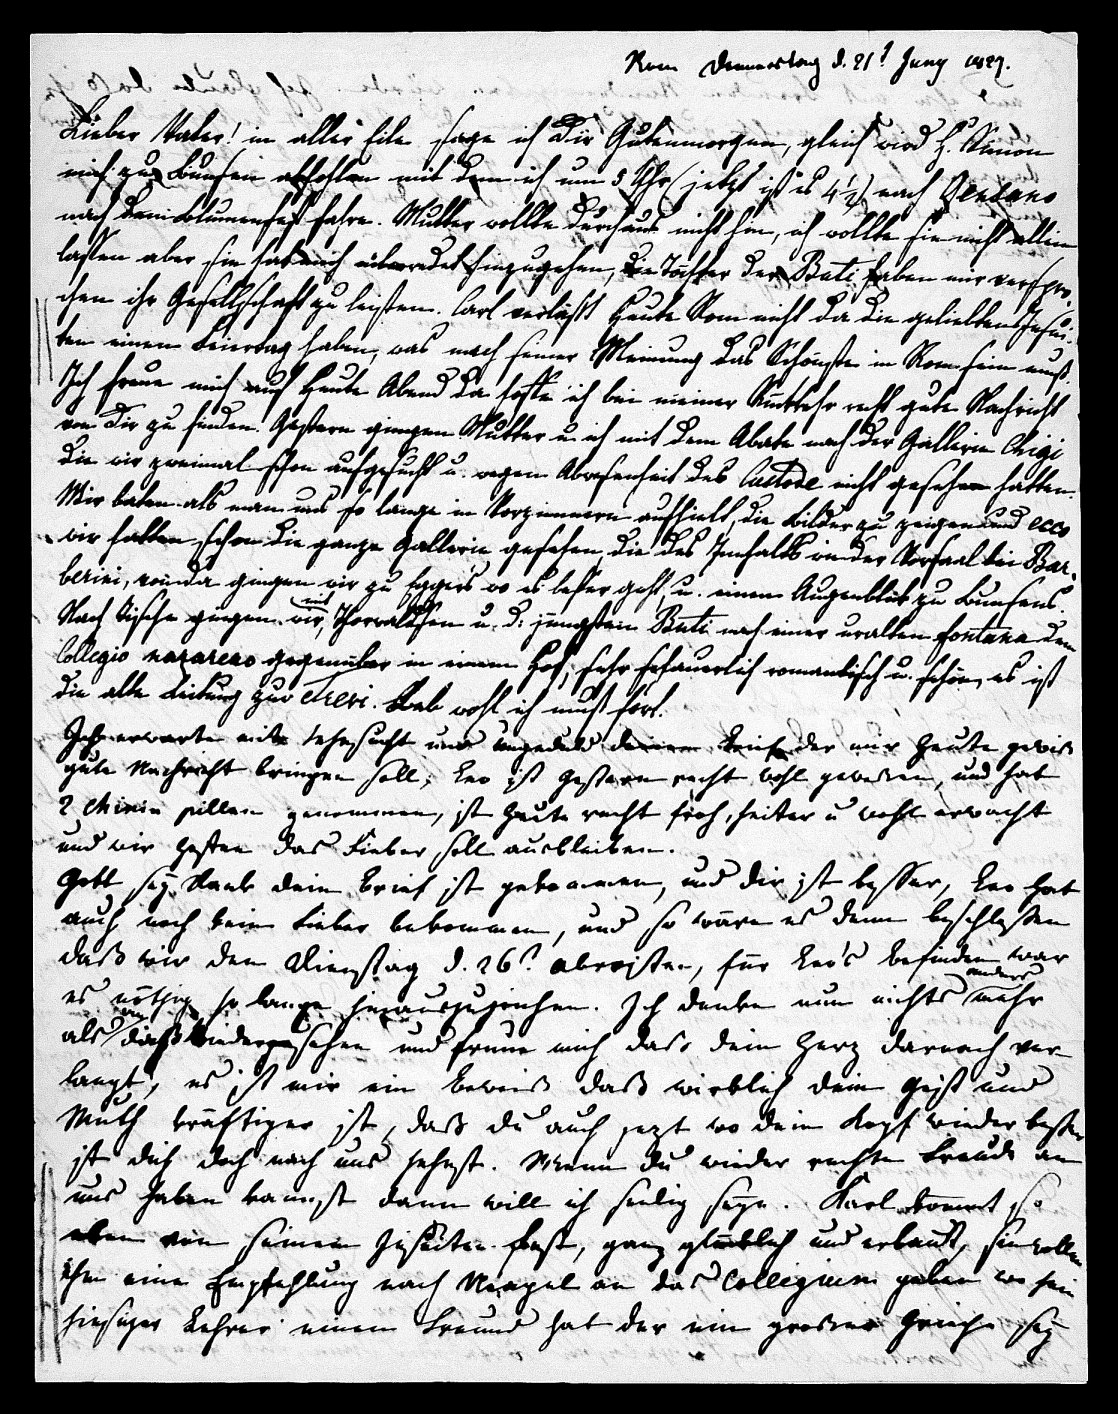 Rom Donnerstag d. 21t Juny 1827.
Lieber Vater! in aller Eile sage ich Dir Gutenmorgen, gleich wird H. Simon
mich zu Bunsen abholen mit dem ich um 5 Uhr (jetzt ist es 4½) nach Genzano
nach dem Blumenfest fahre. Mutter wollte durchaus nicht hin, ich wollte sie nicht allein
lassen aber sie hat mich überredet hinzugehen, die Töchter der Buti haben mir verspro-
chen ihr Gesellschaft zu leisten. Carl verläßt heute Rom nicht da die geliebten Jesui-
ten einen Feiertag haben, was nach seiner Meinung das Schönste in Rom sein muß.
Ich freue mich auf heute Abend da hoffe ich bei meiner Rückkehr recht gute Nachricht
von Dir zu finden. Gestern gingen Mutter u. ich mit dem Abate nach der Gallerie Chigi
die wir zweimal schon aufgesucht u. wegen Abwesenheit des Custode nicht gesehen hatten.
Wir baten als man uns so lange in Vorzimmern aufhielt, die Bilder zu zeigen und ecco
wir hatten schon die ganze Gallerie gesehen die des Inhalts wie der Vorsaal bei Bar-
berini, von da gingen wir zu Eggers wo es besser geht, u. einen Augenblick zu Bunsens.
Nach Tische gingen wir mit Thorwaldsen u. d. jüngsten Buti nach einer uralten fontana dem
Collegio nazareno gegenüber in einem Hof, sehr schauerlich romantisch u. schön, es ist
die alte Leitung zur Trevi. Leb wohl ich muß fort.
Ich erwarte mit Sehnsucht und Ungeduld deinen Brief der mir heute gewiß
gute Nachricht bringen soll; Leo ist gestern recht wohl gewesen, und hat
2 Chinin pillen genommen, ist heute recht froh, heiter u wohl erwacht
und wir hoffen das Fieber soll ausbleiben.
Gott sey Dank dein Brief ist gekommen, und dir ist besser, Leo hat
auch noch kein Fieber bekommen, und so wäre es denn beschlossen
daß wir den Dienstag d. 26t. abreisten, für Leo's Befinden war
es nöthig so lange hinauszuziehen. Ich denke nun nichts anders mehr
als an dieß Wiedersehen und freue mich daß dein Herz darnach ver-
langt, es ist mir ein Beweis daß wirklich dein Geist und
Muth kräftiger ist, daß du auch jezt wo dein Kopf wieder besser
ist dich doch nach uns sehnst. Wenn du wieder rechte Freude an
uns haben kannst dann will ich seelig seyn. Karl kommt so
eben von seinem Jesuiten Fest, ganz glücklich und erbaut, sie wollen
ihm eine Empfehlung nach Neapel an das Collegium geben wo sein
hiesiger Lehrer einen Freund hat der ein grosser Grieche sey